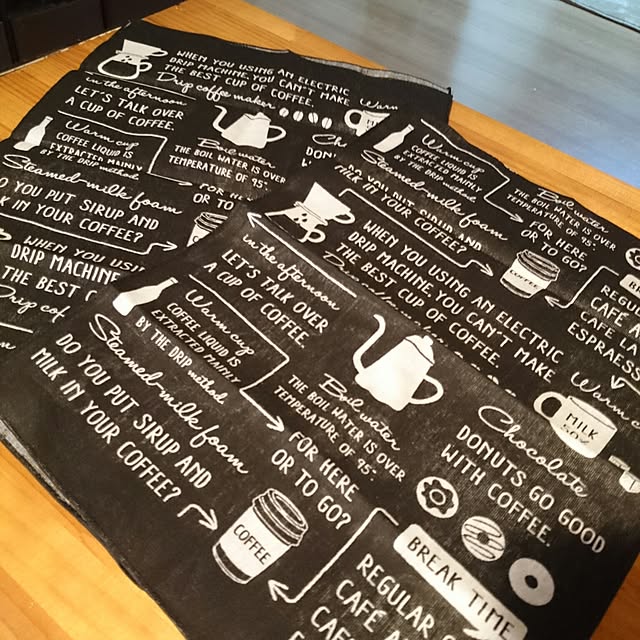 WHEN YOU USING AN ELECTRIC
DRIP MACHINE, YOU CAN'T MAKE
THE BEST CUP OF COFFEE.
Drip coffe maker
Warm
in the afternoon
LET'S TALK OVER
A CUP OF COFFEE.
Warm cup
COFFEE LIQUID IS
EXTRACTED MAINLY
BY THE DRIP method
Boil water
THE BOIL WATER IS
TEMPERATURE OF 95°
Steamed-milk foam
DO YOU PUT SIRUP AND
MILK IN YOUR COFFEE?
FOR
OR TO
WHEN YOU USI
DRIP MACHINE
THE BEST C
Drip cof
Warm cup
COFFEE LIQUID IS
EXTRACTED MAINLY
BY THE DRIP method
Steamed-milk foam
DO YOU PUT SIRUP AND
MILK IN YOUR COFFEE?
Boil water
THE BOIL WATER IS OVER
TEMPERATURE OF 95°
FOR HERE
OR TO GO?
COFFEE
REGU
CAFE A
CAFE LA
ESPRAESS
WHEN YOU USING AN ELECTRIC
DRIP MACHINE, YOU CAN'T MAKE
THE BEST CUP OF COFFEE.
Warm c
MILK
in the afternoon
LET'S TALK OVER
A CUP OF COFFEE.
Warm cup
COFFEE LIQUID IS
EXTRACTED MAINLY
BY THE DRIP method
Boil water
THE BOIL WATER IS OVER
TEMPERATURE OF 95°
Chocolate
DONUTS GO GOOD
WITH COFFEE.
Steamed-milk foam
DO YOU PUT SIRUP AND
MILK IN YOUR COFFEE?
FOR HERE
OR TO GO?
COFFEE
BREAK TIME
REGULAR
CAFÉ A
CAF